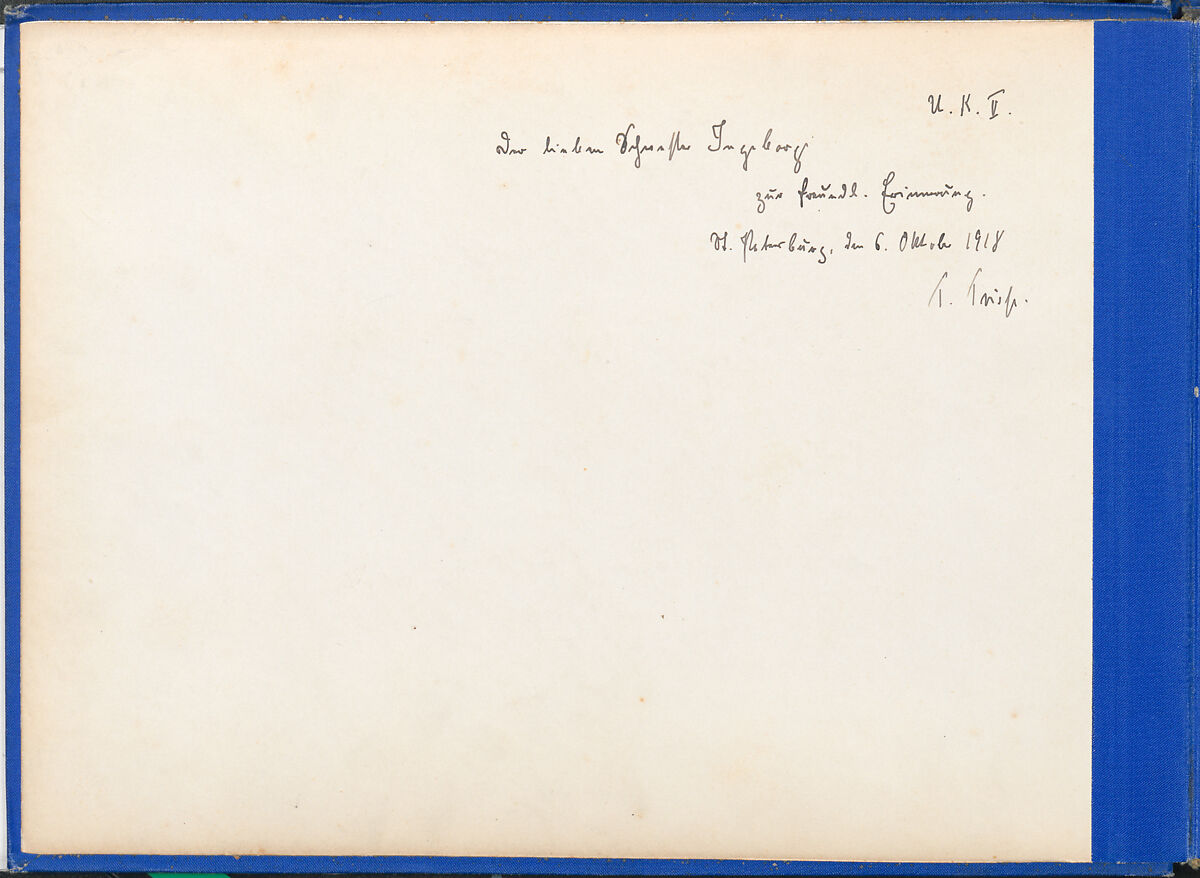 U. K. V.
Der lieben Schwester Ingeborg
zur freundl. Erinnerung.
St. Petersburg, den 6. Oktober 1918
T.